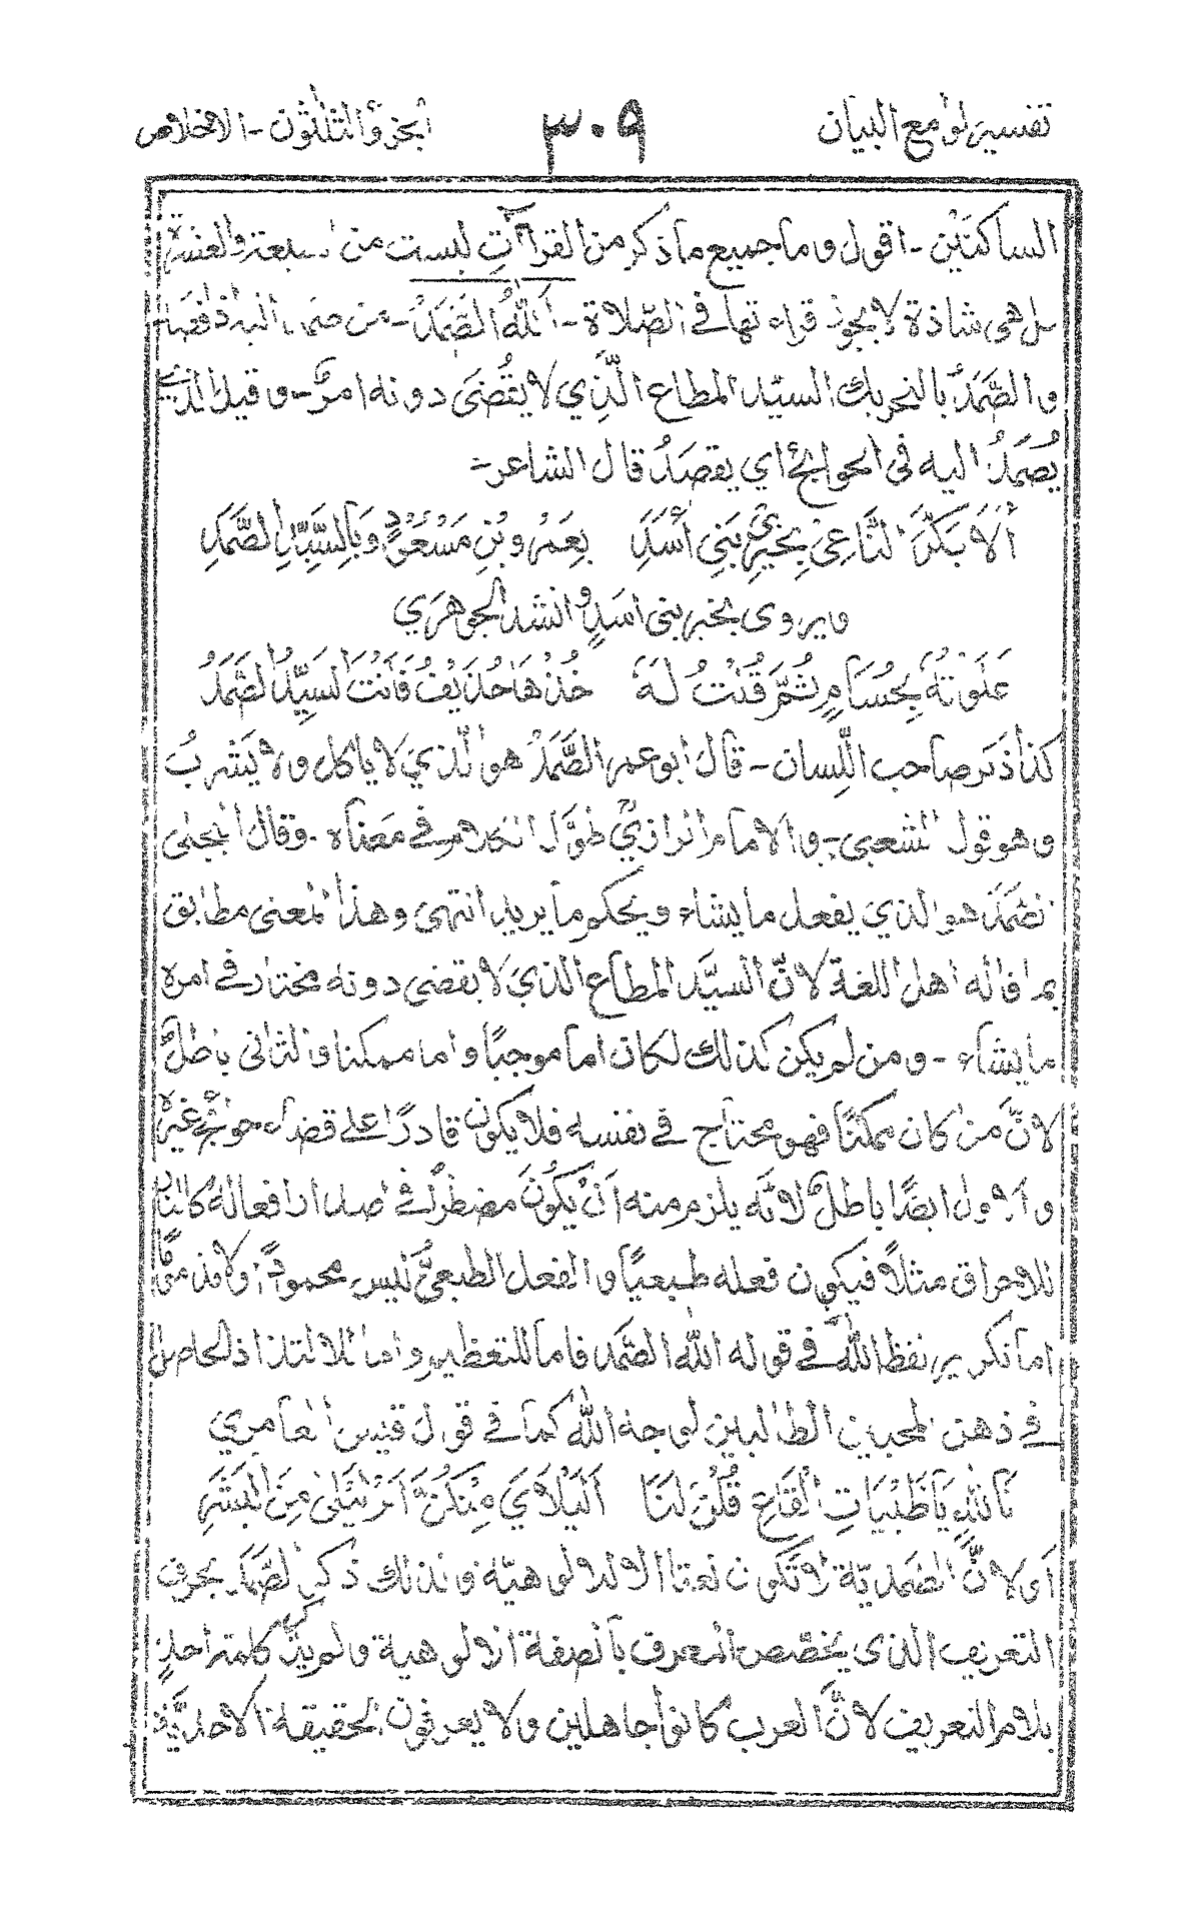 تفسير لوامع البيان ٣٠٩ الجزؤ الثلثون - الاخلاص
الساكنَيْن - اقول وما جميع ما ذكر من القرآتِ ليست من السبعة والعشرة
بل هى شاذة لا يجوز قراءتها فى الصّلاة - اَللّٰهُ الصَّمَدُ - من صمد اليه اذا قصد
والصَّمَدُ بالتحريك السيّد المطاع الَّذِي لا يُقْضَى دونه امرٌ - وقيل الذي
يُصْمَدُ اليه فى الحوائج اي يقصَدُ قال الشاعر -
أَلَا بَكَّرَ النَّاعِىْ بِخَيْرَيْ بَنِي أَسَدِ بِعَمْرِو بْنِ مَسْعُوْدٍ وَبِالسَّيِّدِ الصَّمَدِ
ويروى بخير بنى اسدٍ وانشد الجوهري
عَلَوْتُهُ بِحُسَامٍ ثُمَّ قُلْتُ لَهُ خُذْهَا حُذَيْفُ فَاَنْتَ السَيِّدُ الصَّمَدُ
كذا ذكر صاحب اللِّسان - قال ابو عمر الصَّمَدُ هو الّذيْ لا ياكل ولا يَشْرَبُ
وهو قول الشعبى - والامام الرازيّ طوّل الكلام فى معناه - وقال
الصَّمَدُ هو الذي يفعل ما يشاء ويحكم ما يريد انتهى وهذا المعنى مطابق
بما قاله اهل اللغة لانّ السيَّد المطاع الذيْ لا يقضى دونه مختار فى امره
ما يشاء - ومن لم يكن كذلك لكان اما موجبًا واما ممكنا والثانى باطلٌ
لانّ من كان ممكنًا فهو محتاج فى نفسه فلا يكون قادرًا على قضاء حوائج غيره
والاول ايضًا باطلٌ لانّه يلزم منه اَنْ يَكُوْنَ مضطرًا فى اصدار افعاله كالنار
للاحراق مثلًا فيكون فعله طبيعيًا والفعل الطبعىُّ ليس محمودًا ولا مذمومًا
اما تكرير لفظ اللّٰه فى قوله اللّٰه الصَّمَد فاما للتعظيم واما للالتذاذ الحاصل
فى ذهن المحبين الطالبين لوجه اللّٰه كما فى قول قيس العامري
بَاللّٰهِ يَا ظَبْيَاتِ الْقَاعِ قُلْنَ لَنَا اَلَيْلَايَ مِنْكُنَّ اَمْ لَيْلٰى مِنَ الْبَشَرِ
اَو لانَّ الصَّمَدِيّة لا تكون نعتا الا لالوهيّة ولذلك ذكر الصَّمَد بحرف
التعريف الذى يخصّص المعرف بالصفة الالوهية ولم يذكر كلمة احدٍ
بلام التعريف لانَّ العرب كانوا جاهلين ولا يعرفون الحقيقة الاحديَّة